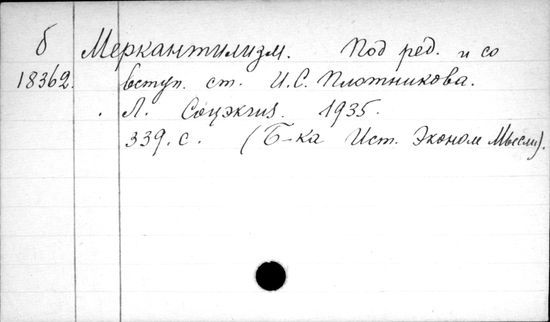 б Меркантилизм. Под ред. и со
18362. вступ. ст. И.С. Плотникова.
Л. Соцэкгиз. 1935.
339. с. (Б-ка Ист. Эконом Мысли).